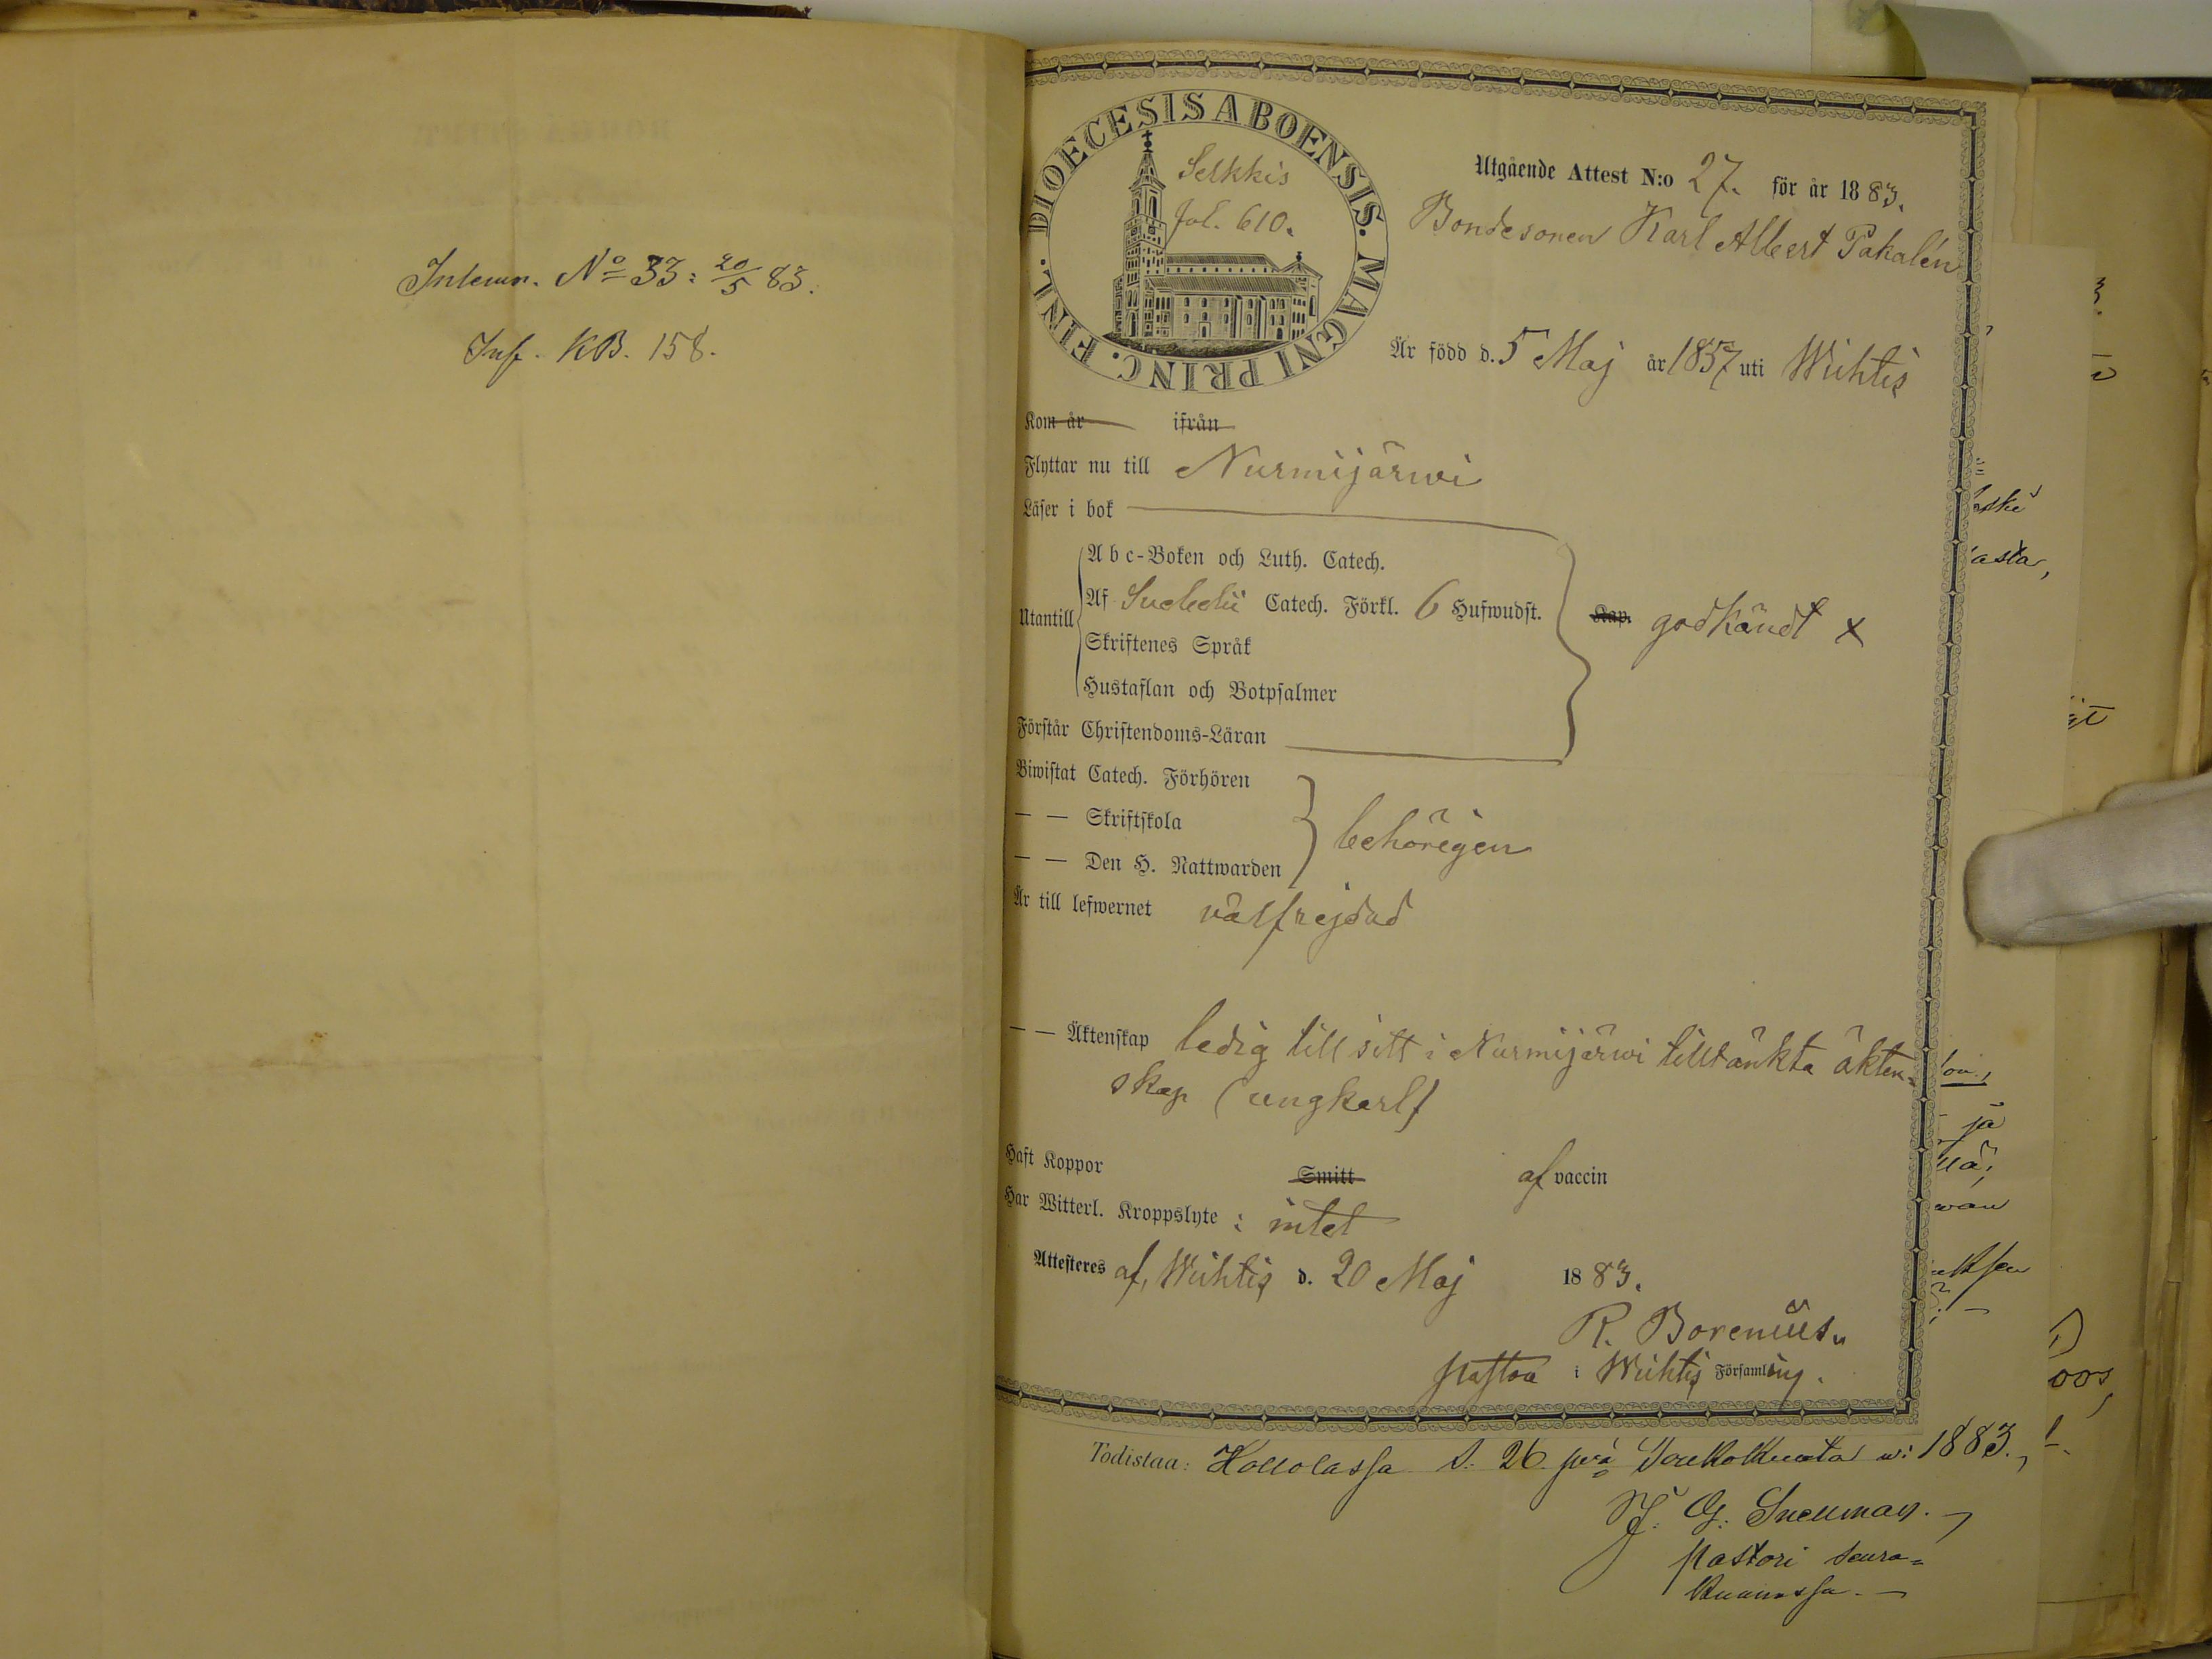 Inlemn. No 33: 20/5 83.
Inf. KB. 158.
DIOECESIS ABOENSIS. MAGNI PRINC. FINL.
Selkkis
fol. 610.
Utgående Attest N:o 27. för år 1883.
Bondesonen Karl Albert Pakalén
Är född d. 5 Maj år 1857 uti Wichtis
Kom år ifrån
Flyttar nu till Nurmijärwi
Läser i bok
Utantill
Abc-Boken och Luth. Catech.
Af Svebelii Catech. Förkl. 6 Hufwudst.
Skriftenes Språk
Hustaflan och Botpsalmer
Kap. godkändt x
Förstår Christendoms-Läran
Biwistat Catech. Förhören
— — Skriftskola
— — Den H. Nattwarden
behörigen
Är till lefwernet välfrejdad
— — Äktenskap ledig till sitt i Nurmijärwi tilltänkta äkten-
skap (ungkarl)
Haft Koppor Smitt af vaccin
Har Witterl. Kroppslyte: intet
Attesteras af, Wichtis d. 20 Maj 1883.
R. Borenius
pastor i Wichtis Församling.
Todistaa: Hollolassa s. 26 p:nä Toukokuuta w: 1883.,
J. G. Snellman.
pastori seura-
kunnassa.
aska
asta,
ja
wan
oos,